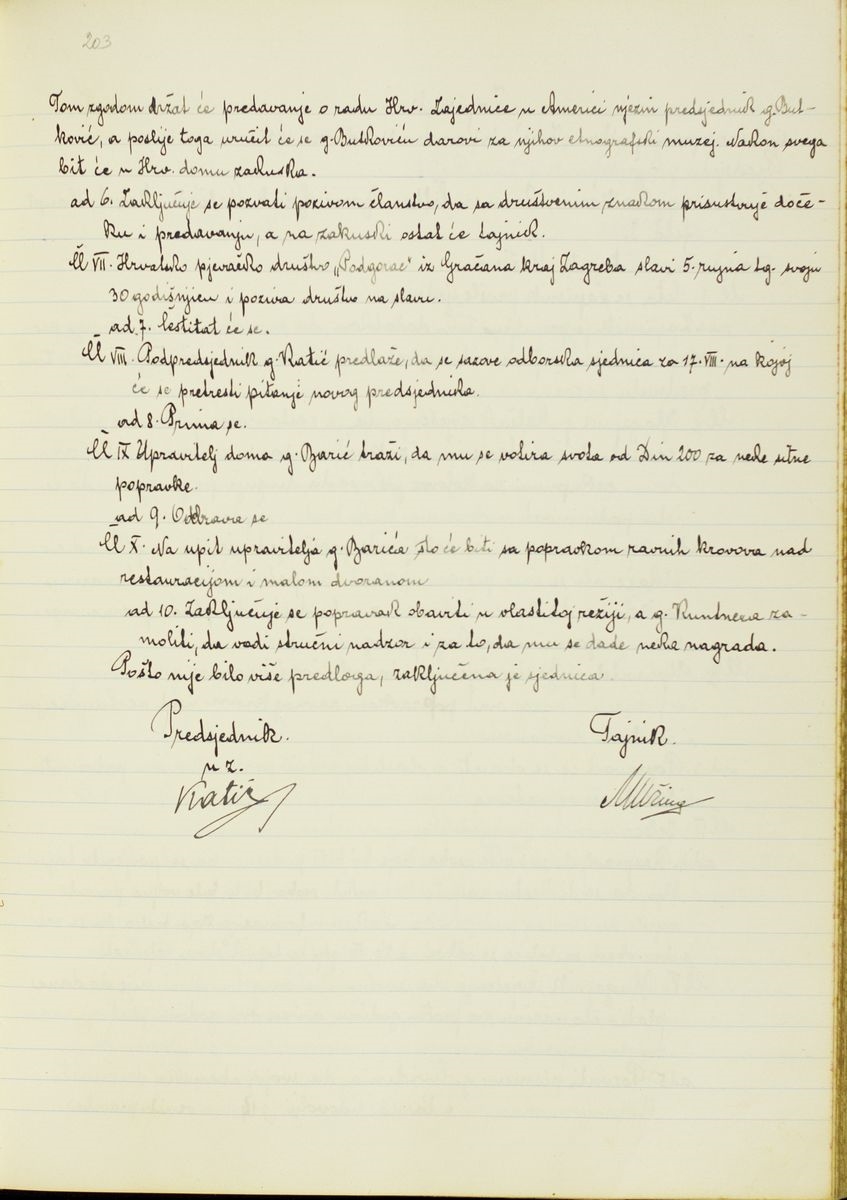 203
Tom zgodom držat će predavanje o radu Hrv. Zajednice u Americi njezin predsjednik g. But-
ković, a poslije toga uručit će se g. Butkoviću darovi za njihov etnografski muzej. Nakon svega
bit će u Hrv. domu zakuska.
ad 6. Zaključuje se pozvati pozivom članstvo, da sa društvenim znakom prisustvuje doče-
ku i predavanju, a na zakuski ostat će tajnik.
Čl VII. Hrvatsko pjevačko društvo „Podgorac" iz Gračana kraj Zagreba slavi 5. rujna t.g. svoju
30 godišnjicu i poziva društvo na slavu.
ad 7. Čestitat će se.
Čl VIII. Podpredsjednik g. Katić predlaže, da se sazove odborska sjednica za 17. VIII. na kojoj
će se pretresti pitanje novog predsjednika.
ad 8. Prima se.
Čl IX Upravitelj doma g. Barić traži, da mu se votira svota od Din 200 za neke sitne
popravke.
ad 9. Odobrava se
Čl X. Na upit upravitelja g. Barića što će biti sa popravkom ravnih krovova nad
restauracijom i malom dvoranom
ad 10. Zaključuje se popravak obaviti u vlastitoj režiji, a g. Kuntnera za-
moliti, da vodi stručni nadzor i za to, da mu se dade neka nagrada.
Pošto nije bilo više predloga, zaključena je sjednica.
Predsjednik. Tajnik.
u z.
Katić